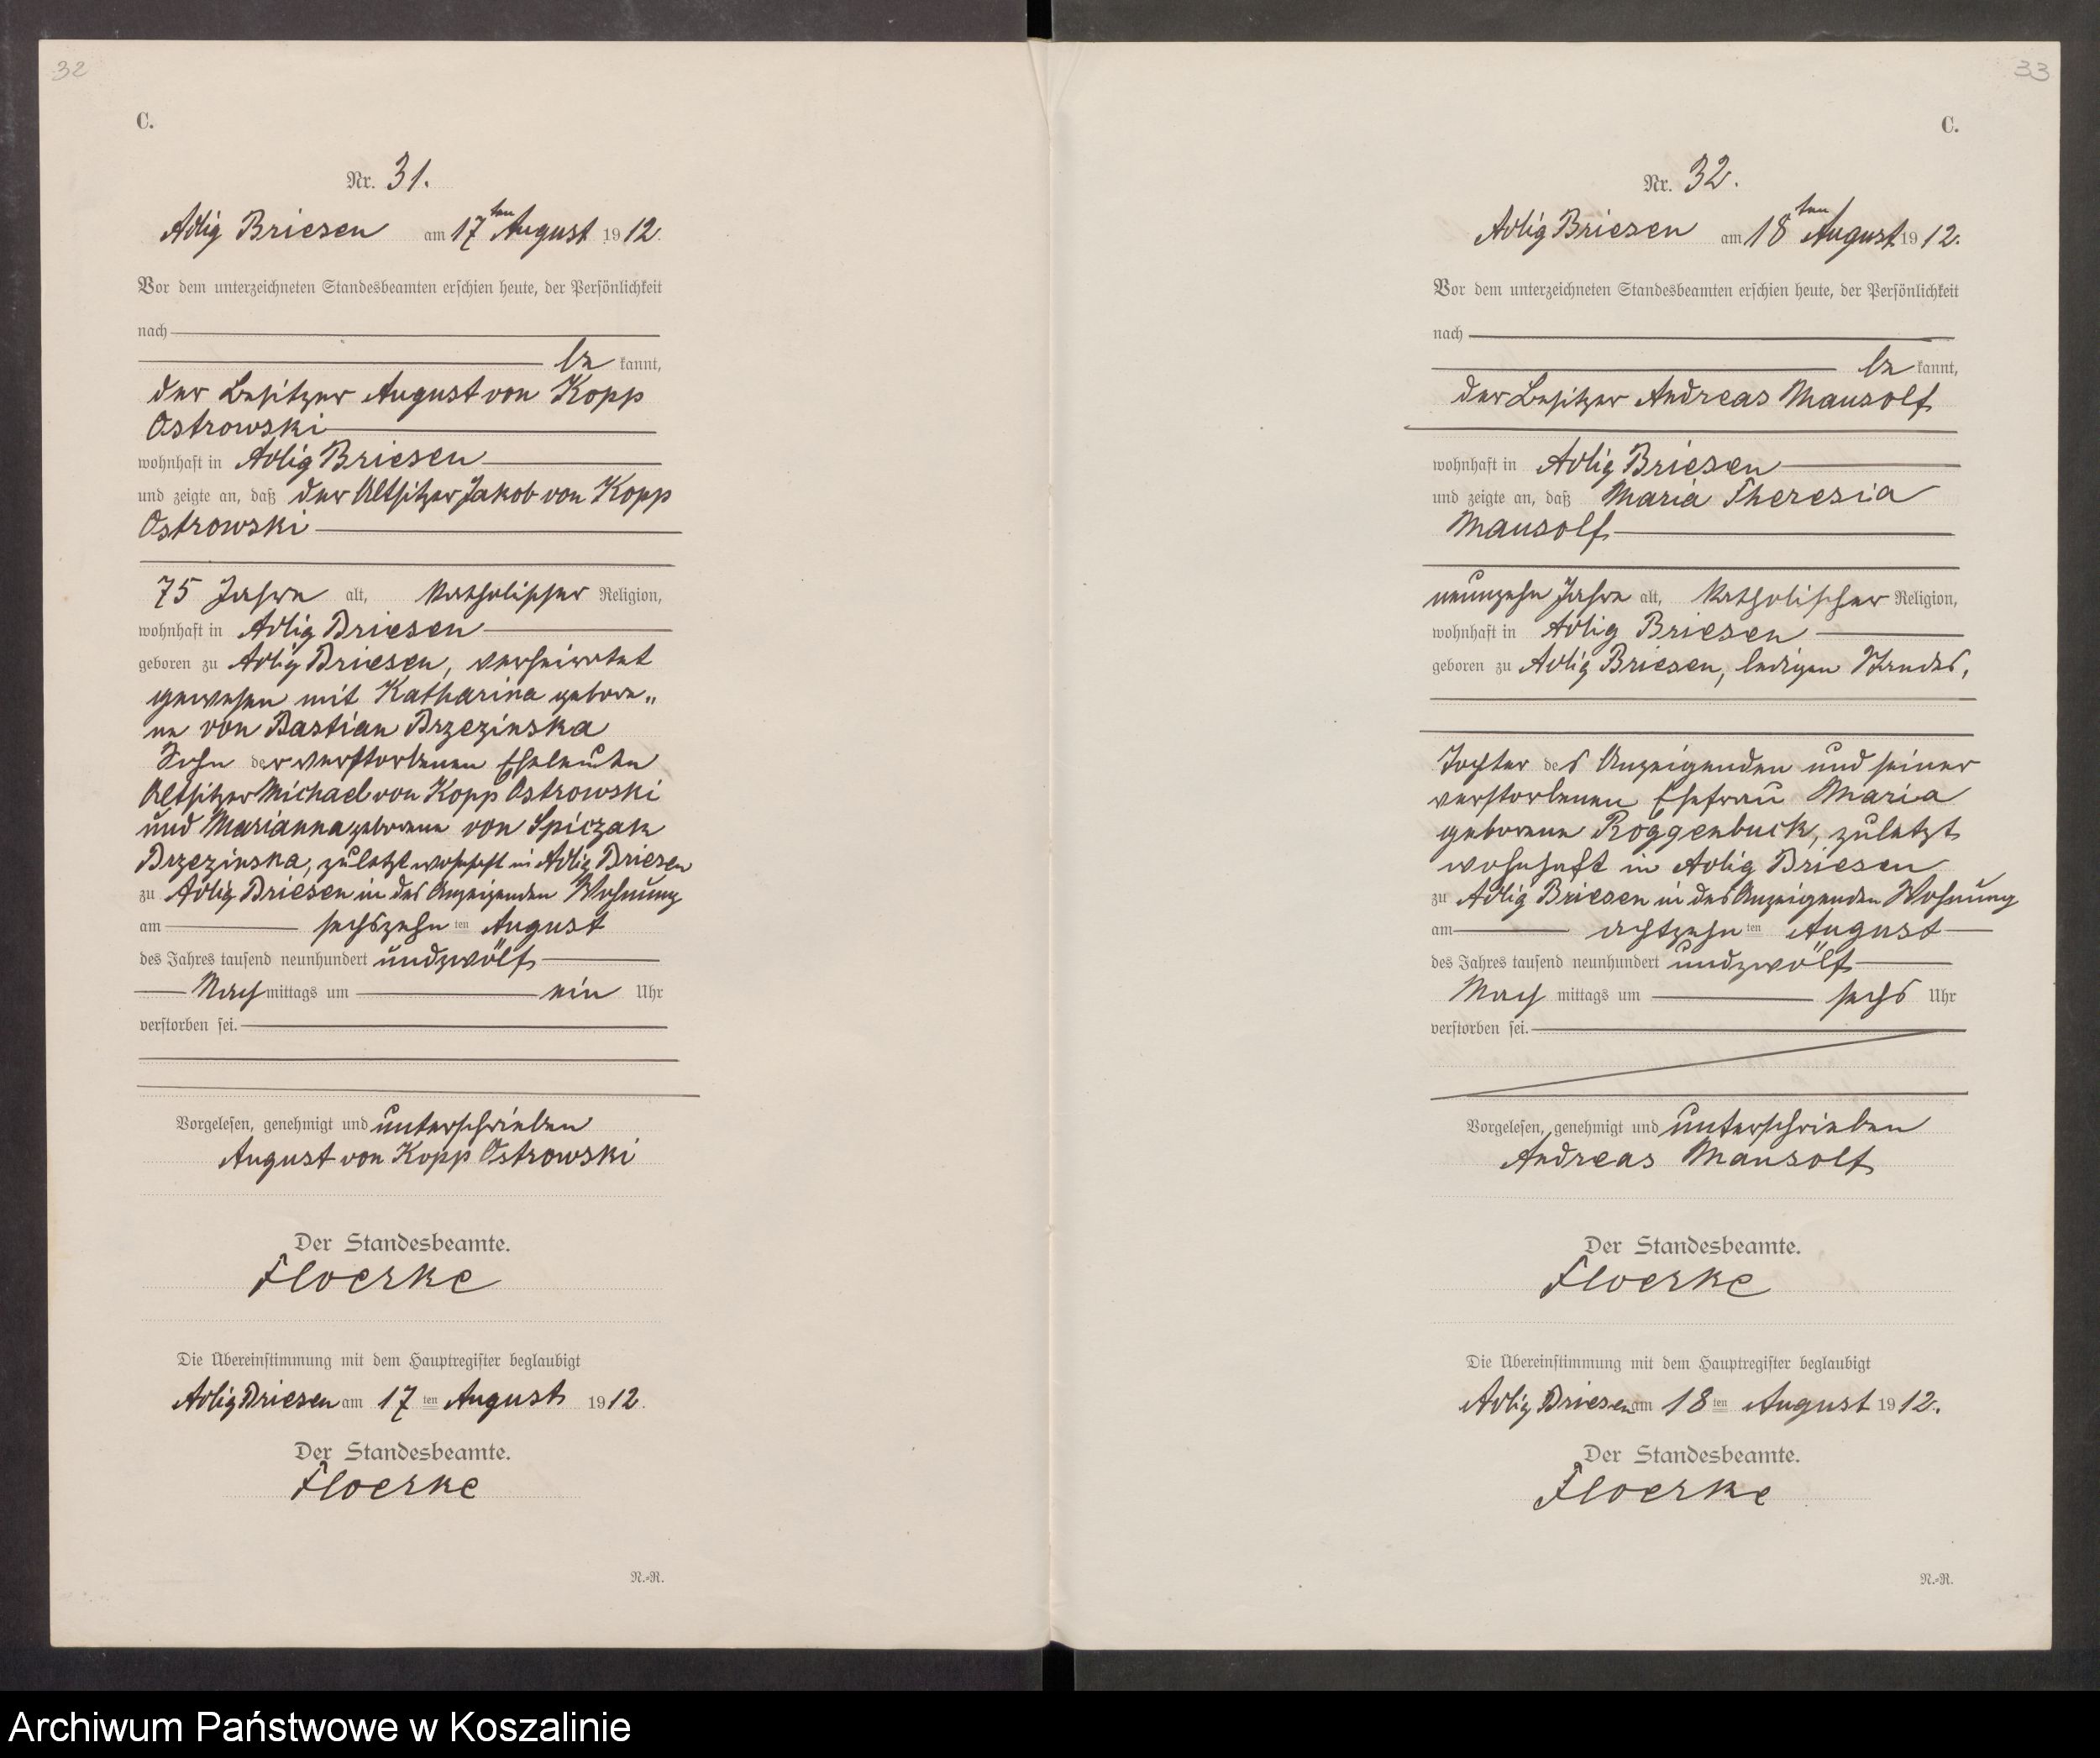 32
C.
Nr. 31.
Adlig Briesen am 17ten August 1912.
Vor dem unterzeichneten Standesbeamten erschien heute, der Persönlichkeit
nach
be kannt,
der Besitzer August von Kopp
Ostrowski
wohnhaft in Adlig Briesen
und zeigte an, daß der Altsitzer Jakob von Kopp
Ostrowski
75 Jahre alt, katholischer Religion,
wohnhaft in Adlig Briesen
geboren zu Adlig Briesen, verheiratet
gewesen mit Katharina gebore„
ne von Bastian Brzezinska
Sohn der verstorbenen Eheleute
Altsitzer Michael von Kopp Ostrowski
und Marianna geborene von Spiczak
Brzezinska, zuletzt wohnhaft in Adlig Briesen
zu Adlig Briesen in des Anzeigenden Wohnung
am sechszehn ten August
des Jahres tausend neunhundert undzwölf
Nach mittags um ein Uhr
verstorben sei.
Vorgelesen, genehmigt und unterschrieben
August von Kopp Ostrowski
Der Standesbeamte.
Floerke
Die Übereinstimmung mit dem Hauptregister beglaubigt
Adlig Briesen am 17 ten August 1912.
Der Standesbeamte.
Floerke
N.-R.
33
C.
Nr. 32.
Adlig Briesen am 18ten August 1912.
Vor dem unterzeichneten Standesbeamten erschien heute, der Persönlichkeit
nach
be kannt,
der Besitzer Andreas Mausolf
wohnhaft in Adlig Briesen
und zeigte an, daß Maria Theresia
Mausolf
neunzehn Jahre alt, katholischer Religion,
wohnhaft in Adlig Briesen
geboren zu Adlig Briesen, ledigen Standes,
Tochter des Anzeigenden und seiner
verstorbenen Ehefrau Maria
geborene Roggenbuck, zuletzt
wohnhaft in Adlig Briesen
zu Adlig Briesen in des Anzeigenden Wohnung
am achtzehn ten August
des Jahres tausend neunhundert undzwölf
Nach mittags um sechs Uhr
verstorben sei.
Vorgelesen, genehmigt und unterschrieben
Andreas Mausolf
Der Standesbeamte.
Floerke
Die Übereinstimmung mit dem Hauptregister beglaubigt
Adlig Briesen am 18 ten August 1912.
Der Standesbeamte.
Floerke
N.-R.
Archiwum Państwowe w Koszalinie